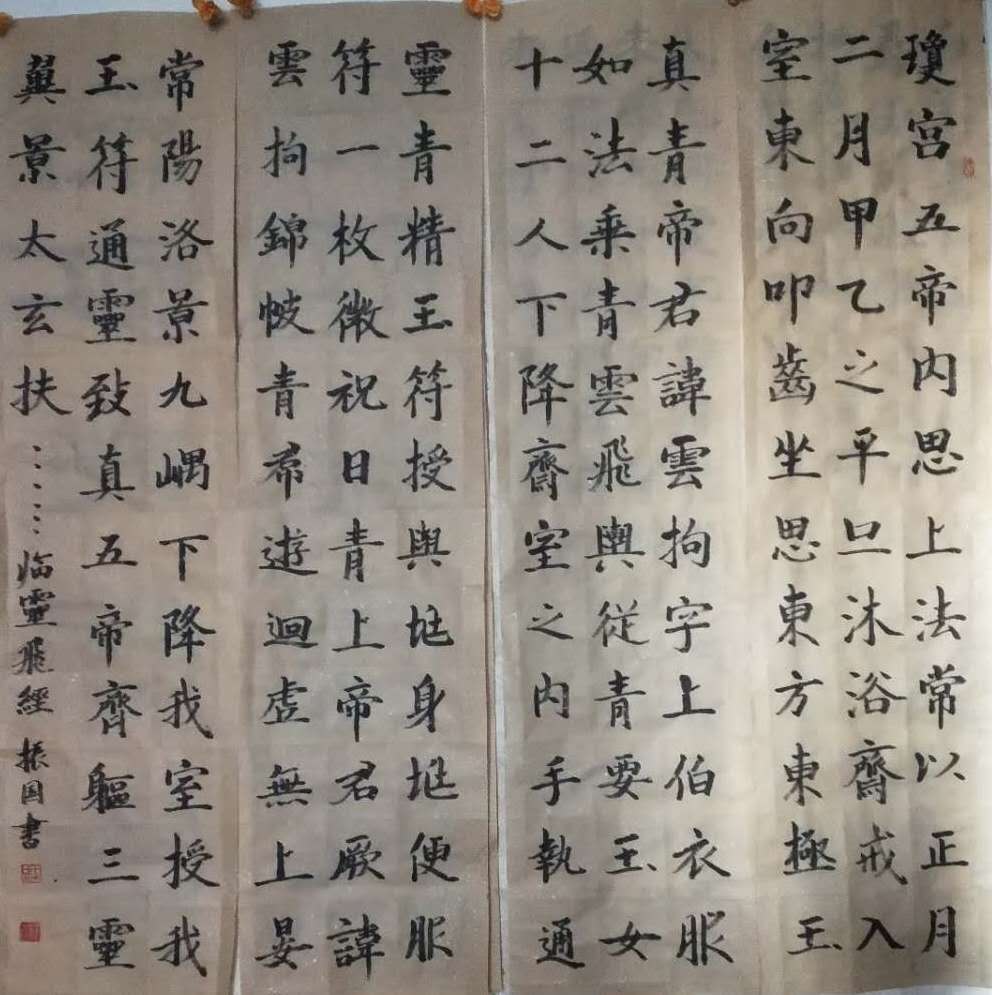 瓊宫五帝内思上法常以正月
二月甲乙之平旦沐浴齋戒入
室東向叩齒坐思東方東極玉
真青帝君諱雲拘字上伯衣服
如法乘青雲飛輿從青要玉女
十二人下降齋室之内手執通
靈青精玉符授與兆身兆便服
符一枚微祝曰青上帝君厥諱
雲拘錦帔青帬遊迴虛無上晏
常陽洛景九嵎下降我室授我
玉符通靈致真五帝齊軀三靈
翼景太玄扶……临靈飛經 振国書